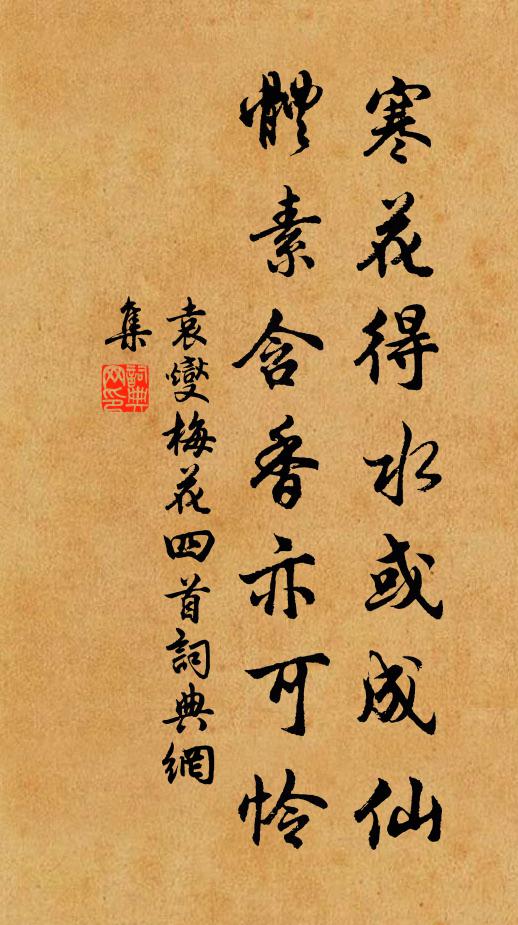 寒花得水或成仙
體素含香亦可怜
袁燮梅花四首詞典網
集
詞典網印